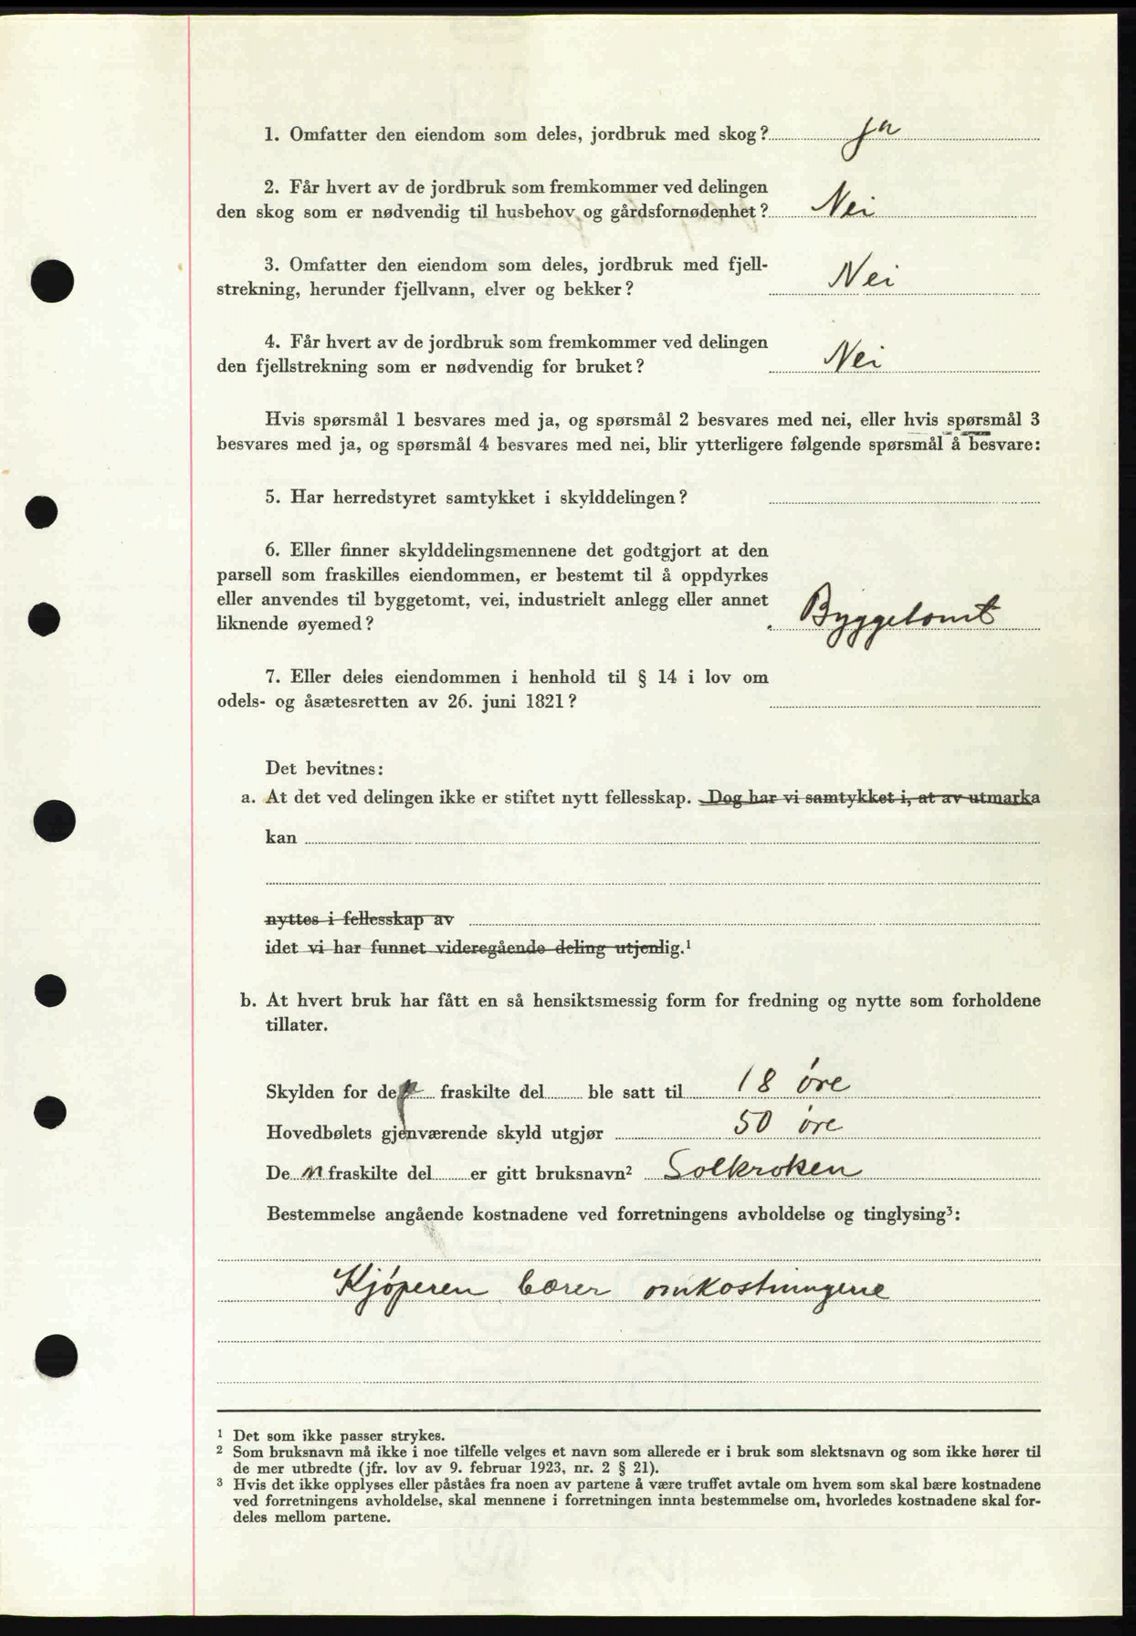 1. Omfatter den eiendom som deles, jordbruk med skog? Ja
2. Får hvert av de jordbruk som fremkommer ved delingen
den skog som er nødvendig til husbehov og gårdsfornødenhet? Nei
3. Omfatter den eiendom som deles, jordbruk med fjell-
strekning, herunder fjellvann, elver og bekker? Nei
4. Får hvert av de jordbruk som fremkommer ved delingen
den fjellstrekning som er nødvendig for bruket? Nei
Hvis spørsmål 1 besvares med ja, og spørsmål 2 besvares med nei, eller hvis spørsmål 3
besvares med ja, og spørsmål 4 besvares med nei, blir ytterligere følgende spørsmål å besvare:
5. Har herredstyret samtykket i skylddelingen?
6. Eller finner skylddelingsmennene det godtgjort at den
parsell som fraskilles eiendommen, er bestemt til å oppdyrkes
eller anvendes til byggetomt, vei, industrielt anlegg eller annet
liknende øyemed? Byggetomt
7. Eller deles eiendommen i henhold til § 14 i lov om
odels- og åsætesretten av 26. juni 1821?
Det bevitnes:
a. At det ved delingen ikke er stiftet nytt fellesskap. Dog har vi samtykket i, at av utmarka
kan
nyttes i fellesskap av
idet vi har funnet videregående deling utjenlig.¹
b. At hvert bruk har fått en så hensiktsmessig form for fredning og nytte som forholdene
tillater.
Skylden for den fraskilte del ble satt til 18 øre
Hovedbølets gjenværende skyld utgjør 50 øre
De n fraskilte del er gitt bruksnavn² Solkroken
Bestemmelse angående kostnadene ved forretningens avholdelse og tinglysing³:
Kjøperen bærer omkostningene
¹ Det som ikke passer strykes.
² Som bruksnavn må ikke i noe tilfelle velges et navn som allerede er i bruk som slektsnavn og som ikke hører til
de mer utbredte (jfr. lov av 9. februar 1923, nr. 2 § 21).
³ Hvis det ikke opplyses eller påståes fra noen av partene å være truffet avtale om hvem som skal bære kostnadene
ved forretningens avholdelse, skal mennene i forretningen innta bestemmelse om, hvorledes kostnadene skal for-
deles mellom partene.